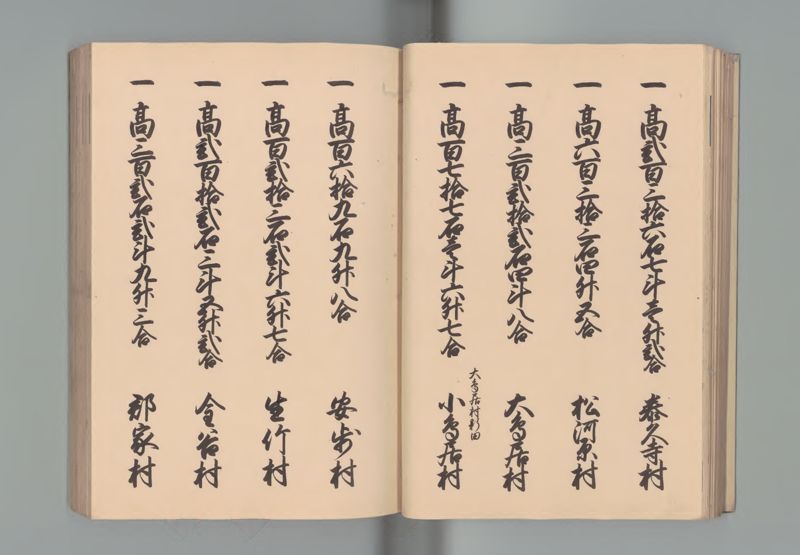 一高弐百三拾六石七斗壱升弐合 泰久寺村
一高六百三拾三石四升五合 松河原村
一高三百弐拾弐石四斗八合 大鳥居村
大鳥居村新田
一高百七拾七石壱斗六升七合 小鳥居村
一高百六拾九石九升八合 安歩村
一高百弐拾三石弐斗六升七合 生竹村
一高弐百拾弐石三斗五升弐合 金谷村
一高三百弐石弐斗九升三合 郡家村